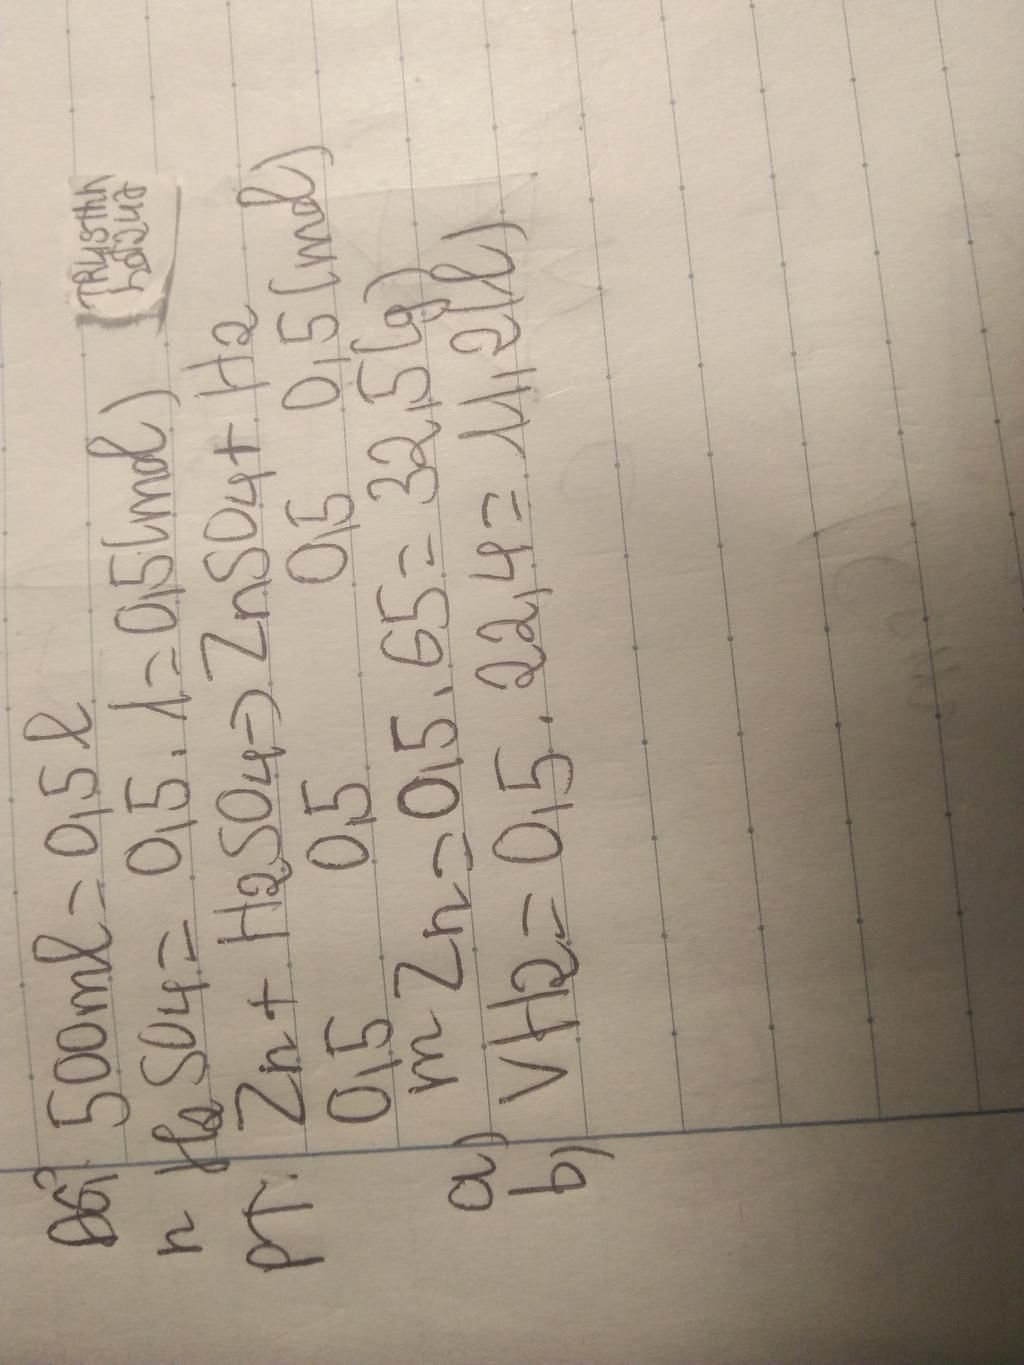 Đổi: 500ml = 0,5l
n H2SO4 = 0,5 . 1 = 0,5 (mol)
PT: Zn + H2SO4 -> ZnSO4 + H2
0,5 0,5 0,5 0,5 (mol)
a) m Zn = 0,5 . 65 = 32,5 (g)
b) VH2 = 0,5 . 22,4 = 11,2 (l)